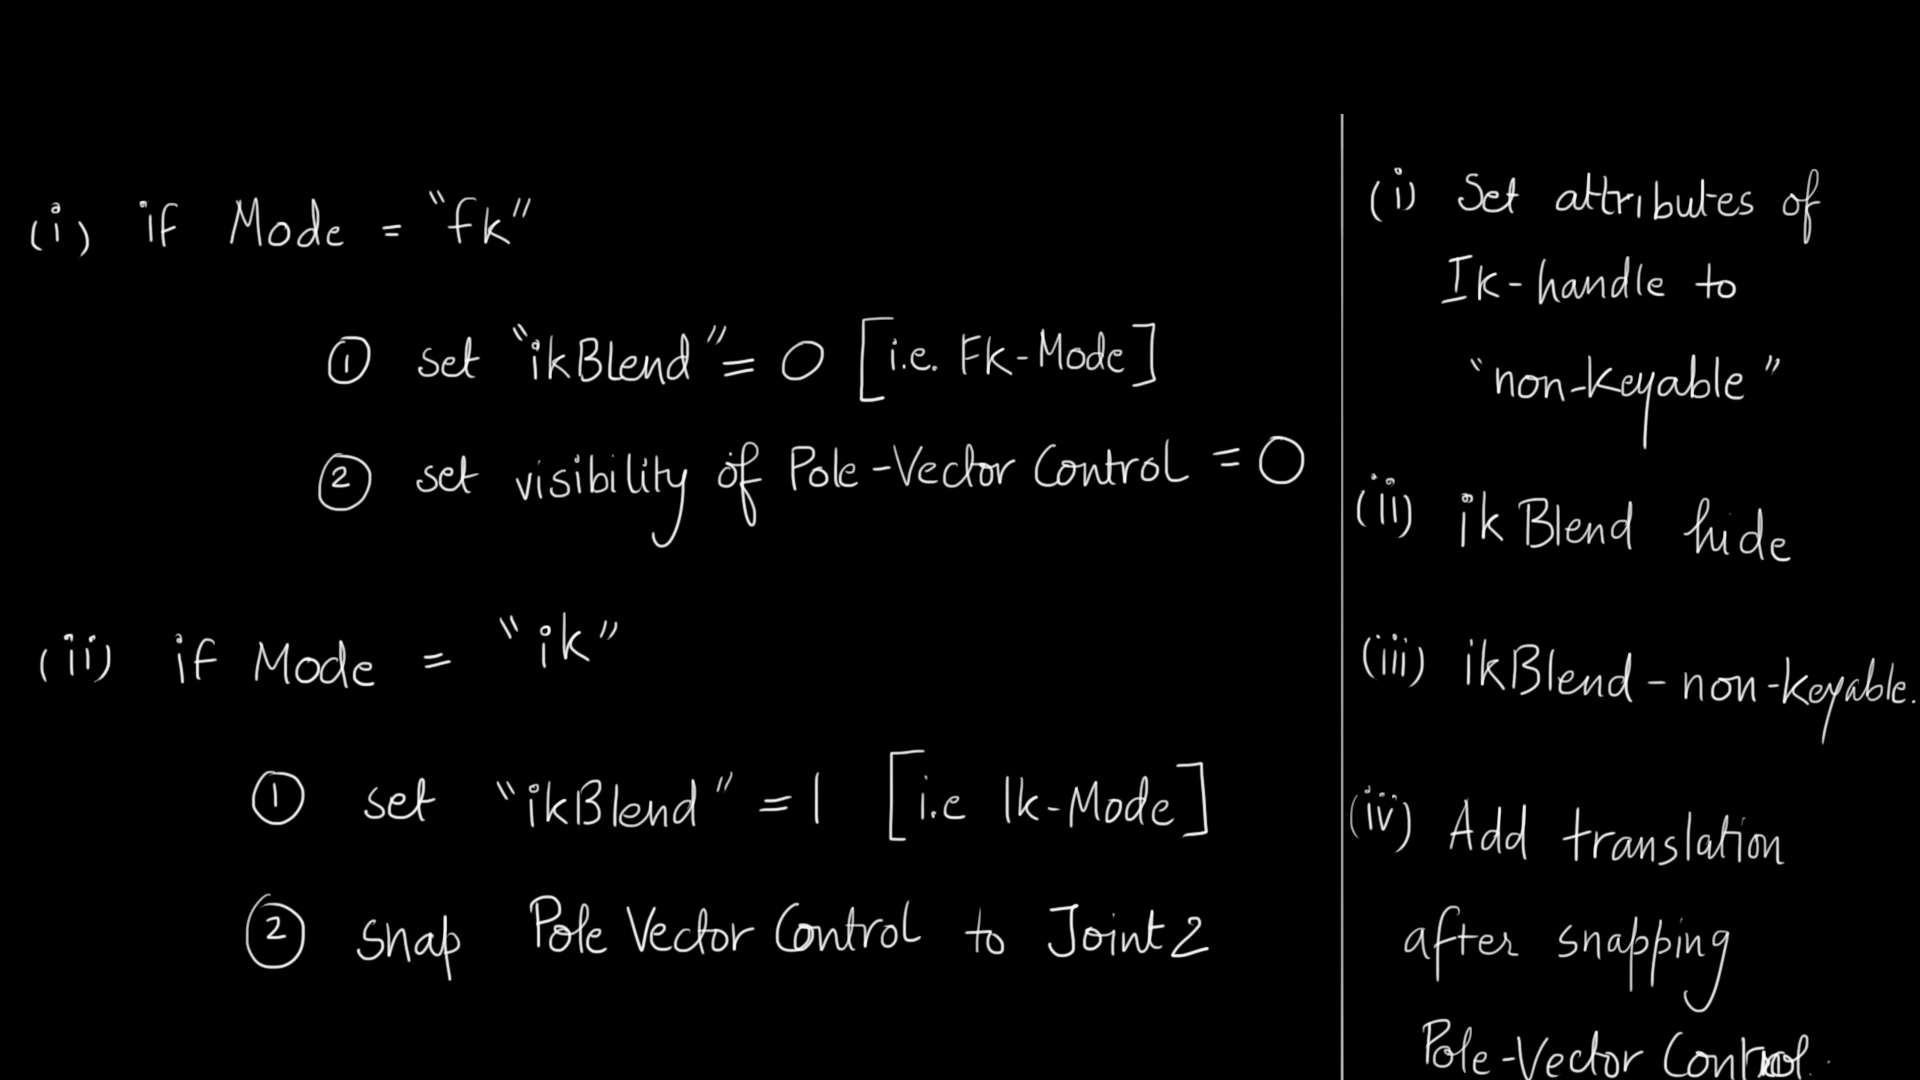 (i) if Mode = "fk"
① set "ikBlend" = 0 [i.e. Fk-Mode]
② set visibility of Pole-Vector Control = 0
(ii) if Mode = "ik"
① set "ikBlend" = 1 [i.e Ik-Mode]
② snap Pole Vector Control to Joint2
(i) Set attributes of
Ik-handle to
"non-keyable"
(ii) ikBlend hide
(iii) ikBlend - non-keyable.
(iv) Add translation
after snapping
Pole-Vector Control.